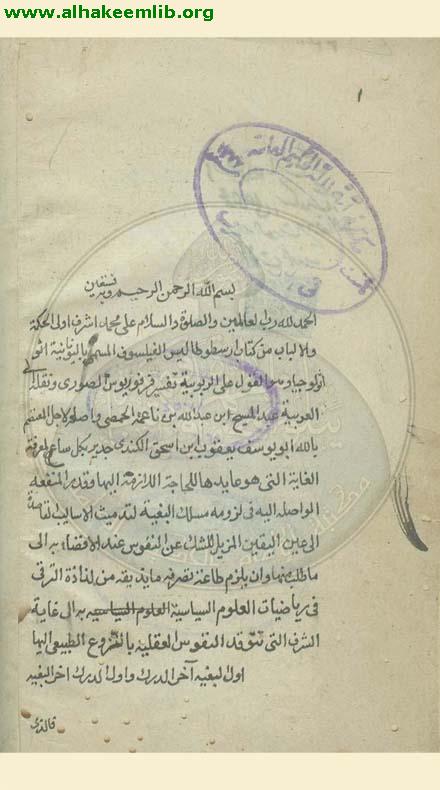 www.alhakeemlib.org
١
بسم الله الرحمن الرحيم وبه نستعين
الحمد لله رب العالمين والصلوة والسلام على محمد اشرف اولى الحكمة
والالباب من كتاب ارسطوطاليس الفيلسوف المسمى باليونانية اثو
لوجيا وهو القول على الربوبية تفسير فرفوريوس الصورى ونقله الى
العربية عبد المسيح ابن عبد الله بن ناعمة الحمصى واصلحه لاحمد المعتصم
بالله ابو يوسف يعقوب ابن اسحق الكندى جدير بكل ساع لمعرفة
الغاية التى هو عايدها للحاجة اللازمة اليها وقدر المنفعة
الواصلة اليه فى لزومه مسلك البغية لتدميث الاساليب القاصدة
الى عين اليقين المزيل للشك عن النفوس عند الافضاء به الى
ما طلب منها وان يلزم طاعة تصرفه ما يذيقه من لذاذة الترقى
فى رياضيات العلوم السياسية العلوم السياسيه به الى غاية
الشرف التى تتوقد النفوس العقلية بالنزوع الطبيعى اليها
اول البغيه آخر الدرك واول الدرك اخر البغيه
فالذى